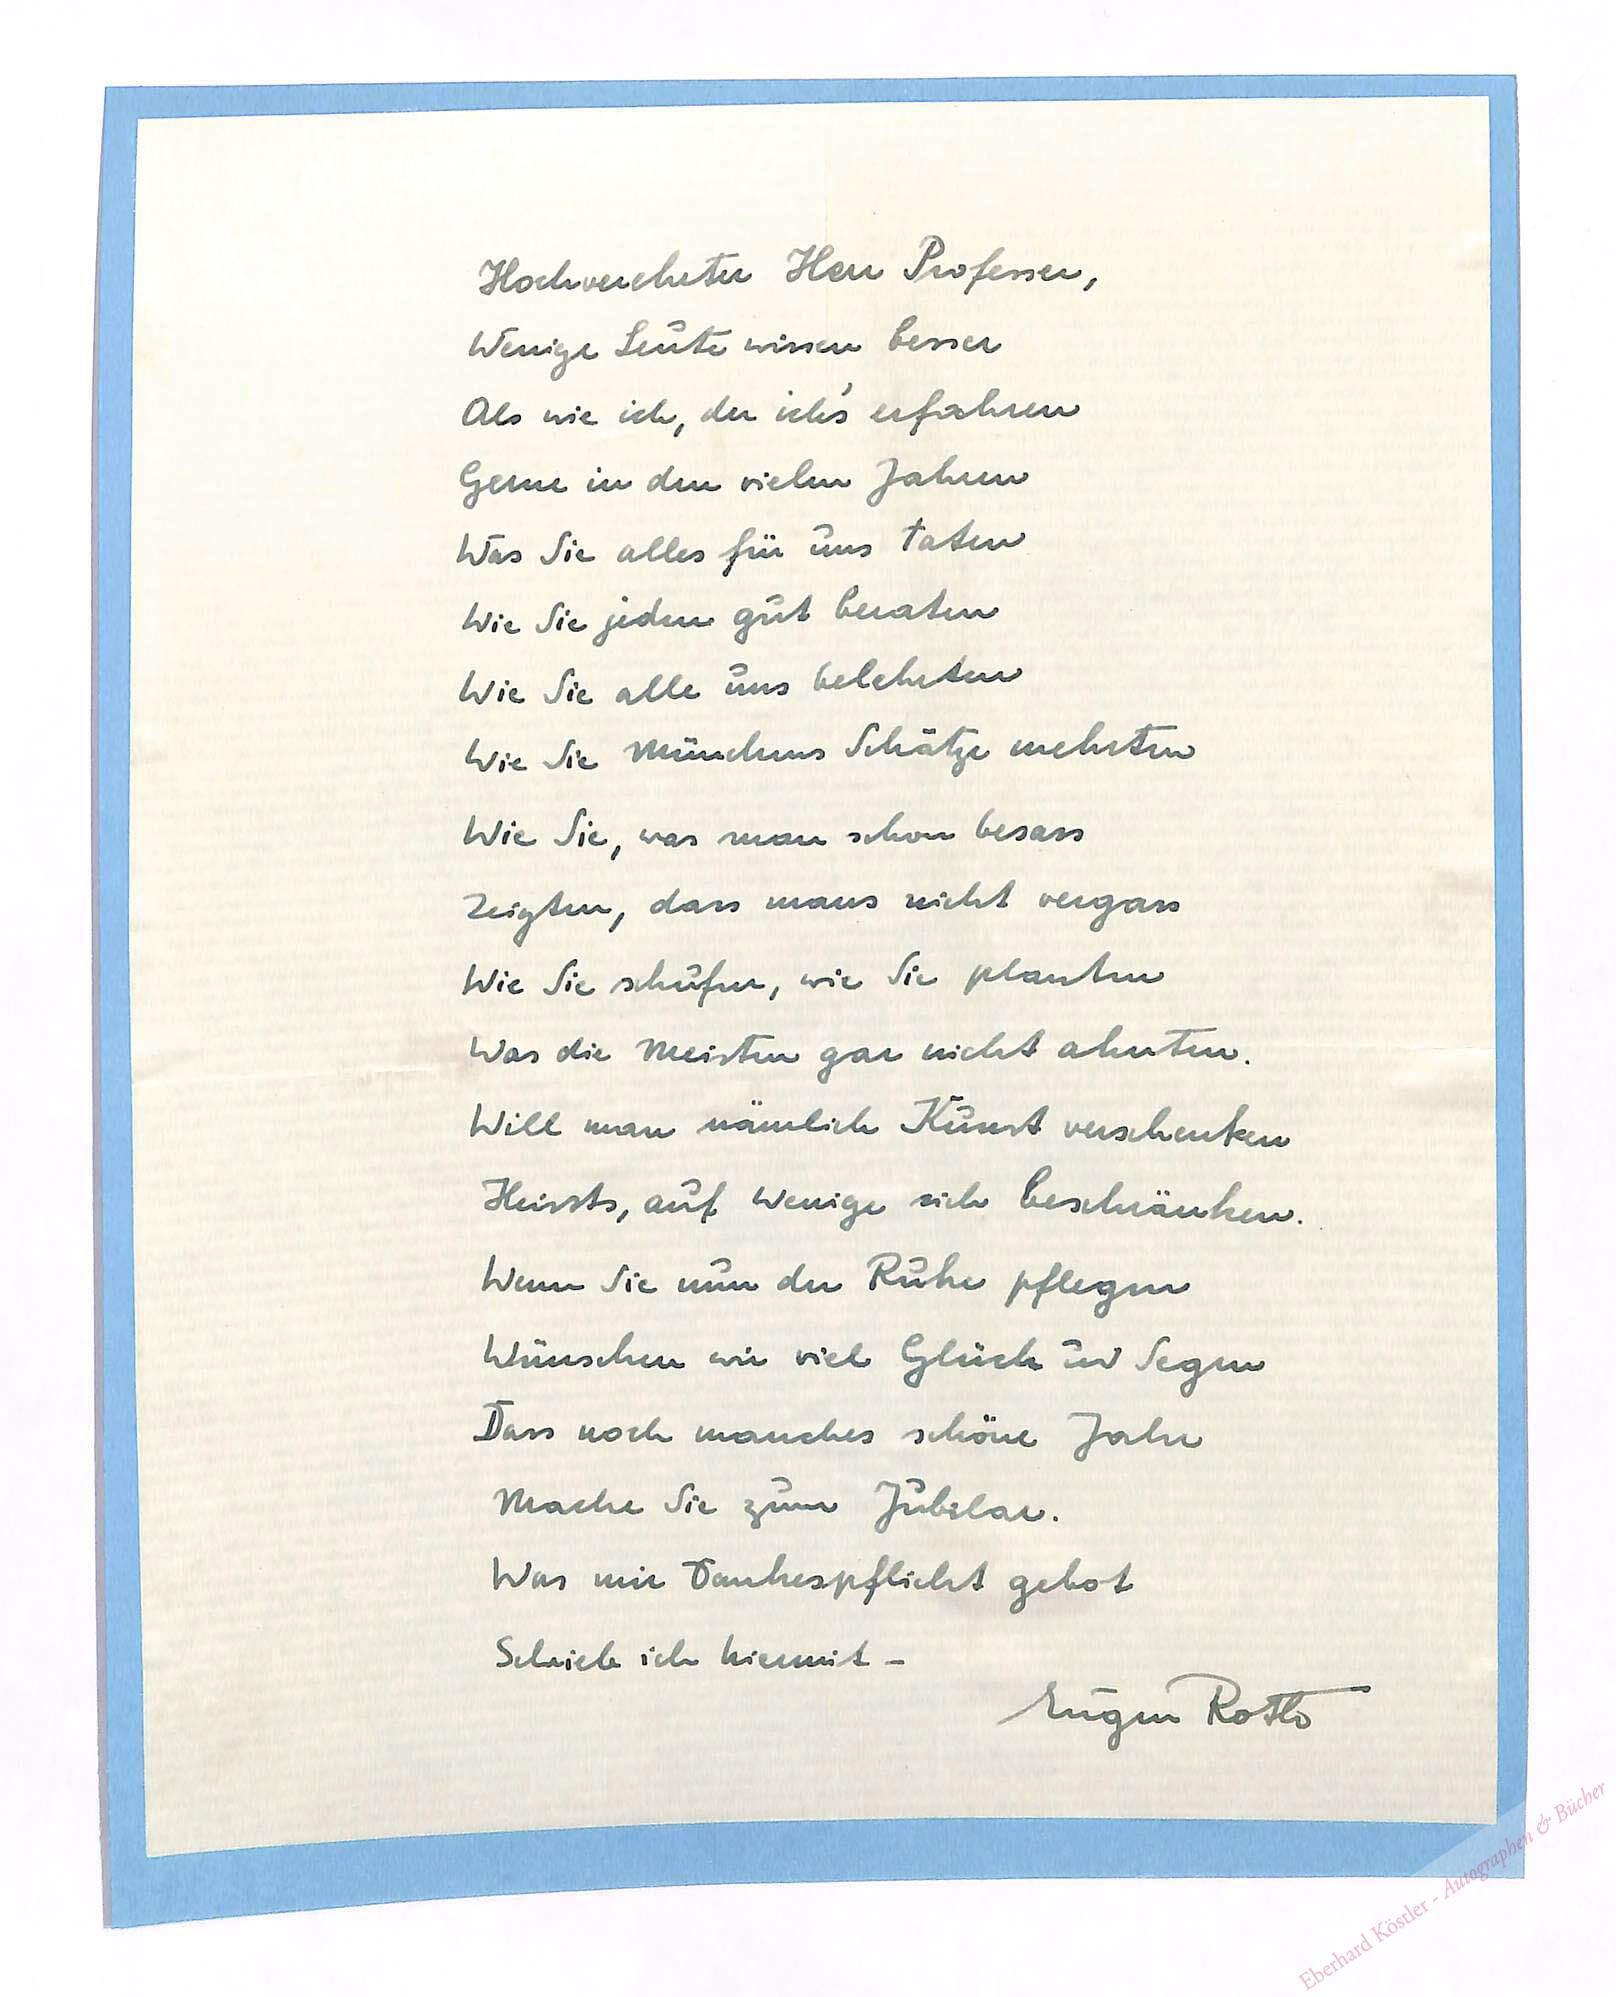 Hochverehrter Herr Professer,
Wenige Leute wissen besser
Als wie ich, der ich's erfahren
Gerne in den vielen Jahren
Was Sie alles für uns taten
Wie Sie jeden gut beraten
Wie Sie alle uns belehrten
Wie Sie Münchens Schätze mehrten
Wie Sie, was man schon besass
Zeigten, dass mans nicht vergass
Wie Sie schufen, wie Sie planten
Was die Meisten gar nicht ahnten.
Will man nämlich Kunst verschenken
Heissts, auf wenige sich beschränken.
Wenn Sie nun der Ruhe pflegen
Wünschen wir viel Glück und Segen
Dass noch manches schöne Jahr
Mache Sie zum Jubelar.
Was mir Dankespflicht gebot
Schrieb ich hiermit –
Eugen Roth
Eberhard Köstler - Autographen & Bücher